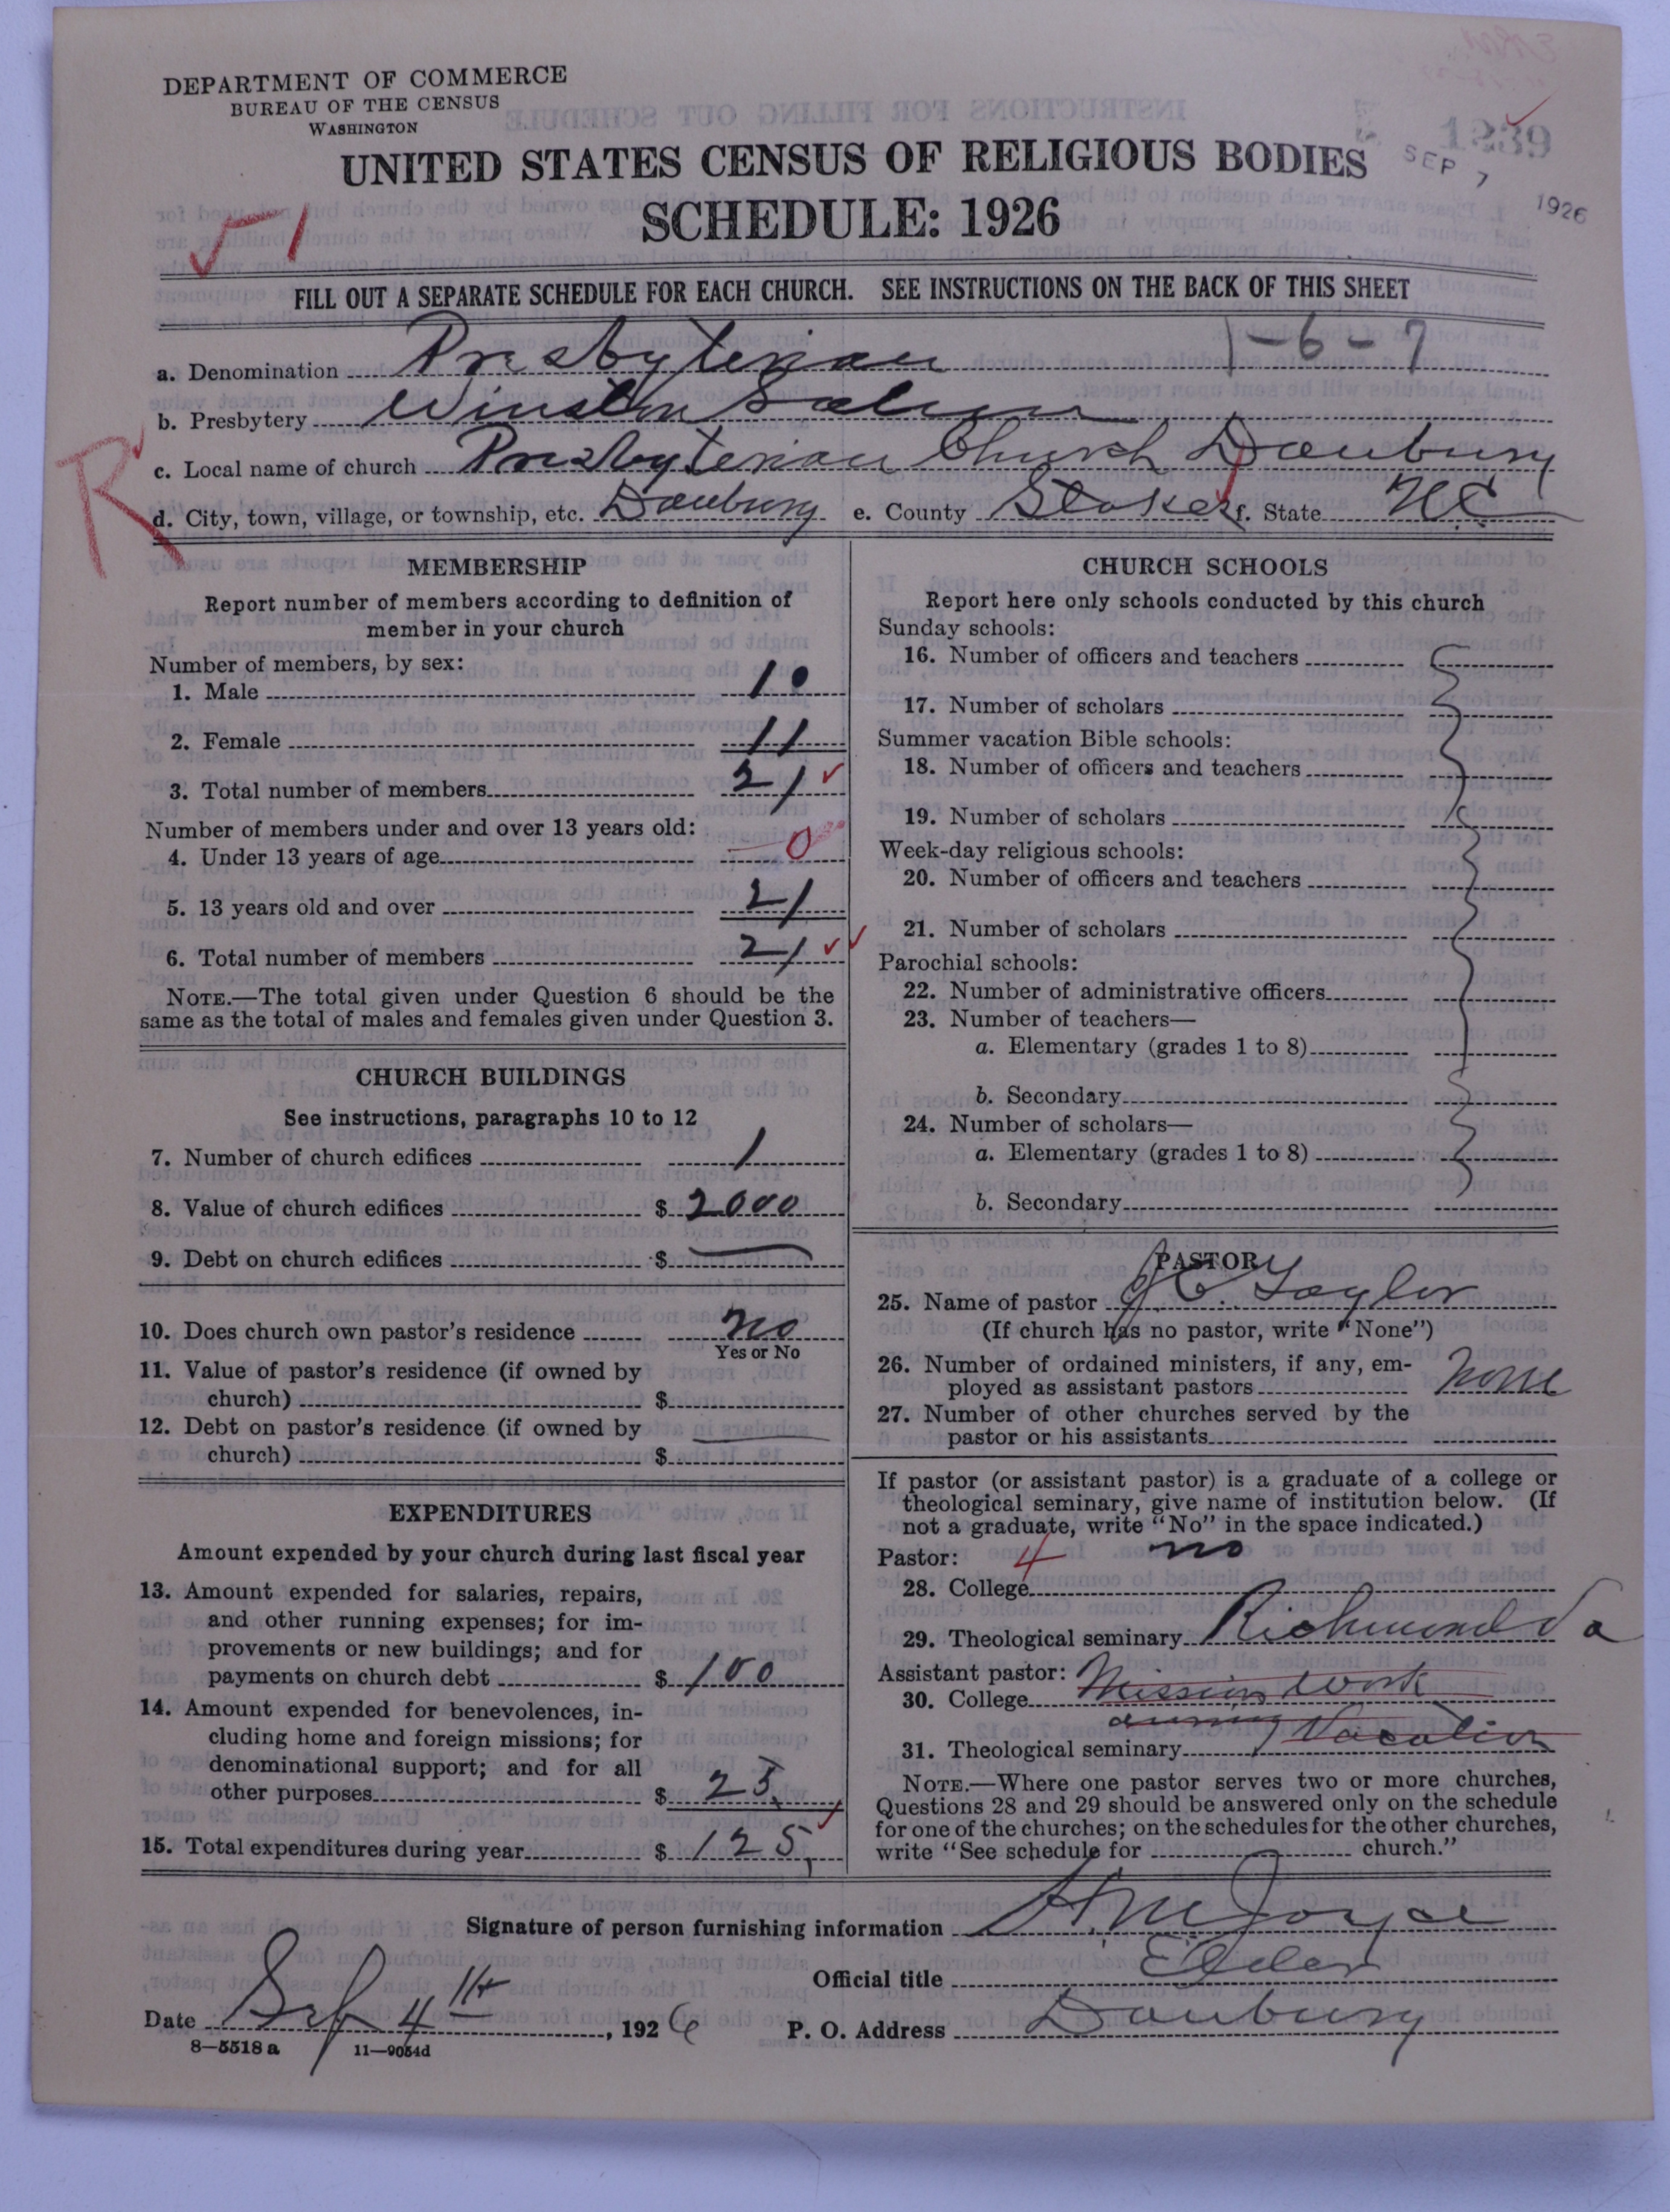 DEPARTMENT OF COMMERCE
BUREAU OF THE CENSUS
WASHINGTON
UNITED STATES CENSUS OF RELIGIOUS BODIES
SCHEDULE: 1926
SEP 7 1926
FILL OUT A SEPARATE SCHEDULE FOR EACH CHURCH. SEE INSTRUCTIONS ON THE BACK OF THIS SHEET
1-6-7
a. Denomination Presbyterian
b. Presbytery Winston Salem
c. Local name of church Presbyterian Church Danbury
R
d. City, town, village, or township, etc. Danbury e. County Stokes f. State N.C.
MEMBERSHIP
Report number of members according to definition of
member in your church
Number of members, by sex:
1. Male 10
2. Female 11
3. Total number of members 21
Number of members under and over 13 years old:
4. Under 13 years of age 0
5. 13 years old and over 21
6. Total number of members 21
NOTE.—The total given under Question 6 should be the
same as the total of males and females given under Question 3.
CHURCH BUILDINGS
See instructions, paragraphs 10 to 12
7. Number of church edifices 1
8. Value of church edifices $ 2000
9. Debt on church edifices $
10. Does church own pastor's residence no
Yes or No
11. Value of pastor's residence (if owned by
church) $
12. Debt on pastor's residence (if owned by
church) $
EXPENDITURES
Amount expended by your church during last fiscal year
13. Amount expended for salaries, repairs,
and other running expenses; for im-
provements or new buildings; and for
payments on church debt $ 100
14. Amount expended for benevolences, in-
cluding home and foreign missions; for
denominational support; and for all
other purposes $ 25
15. Total expenditures during year $ 125
CHURCH SCHOOLS
Report here only schools conducted by this church
Sunday schools:
16. Number of officers and teachers
17. Number of scholars
Summer vacation Bible schools:
18. Number of officers and teachers
19. Number of scholars
Week-day religious schools:
20. Number of officers and teachers
21. Number of scholars
Parochial schools:
22. Number of administrative officers
23. Number of teachers—
a. Elementary (grades 1 to 8)
b. Secondary
24. Number of scholars—
a. Elementary (grades 1 to 8)
b. Secondary
PASTOR
25. Name of pastor Taylor
(If church has no pastor, write "None")
26. Number of ordained ministers, if any, em-
ployed as assistant pastors none
27. Number of other churches served by the
pastor or his assistants
If pastor (or assistant pastor) is a graduate of a college or
theological seminary, give name of institution below. (If
not a graduate, write "No" in the space indicated.)
Pastor: 4 no
28. College
29. Theological seminary Richmond Va
Assistant pastor: Mission work
30. College
during Vacation
31. Theological seminary
NOTE.—Where one pastor serves two or more churches,
Questions 28 and 29 should be answered only on the schedule
for one of the churches; on the schedules for the other churches,
write "See schedule for church."
Signature of person furnishing information Joyce
Official title Elder
Date Sep 4th, 1926 P. O. Address Danbury
8—5518 a 11—9054d